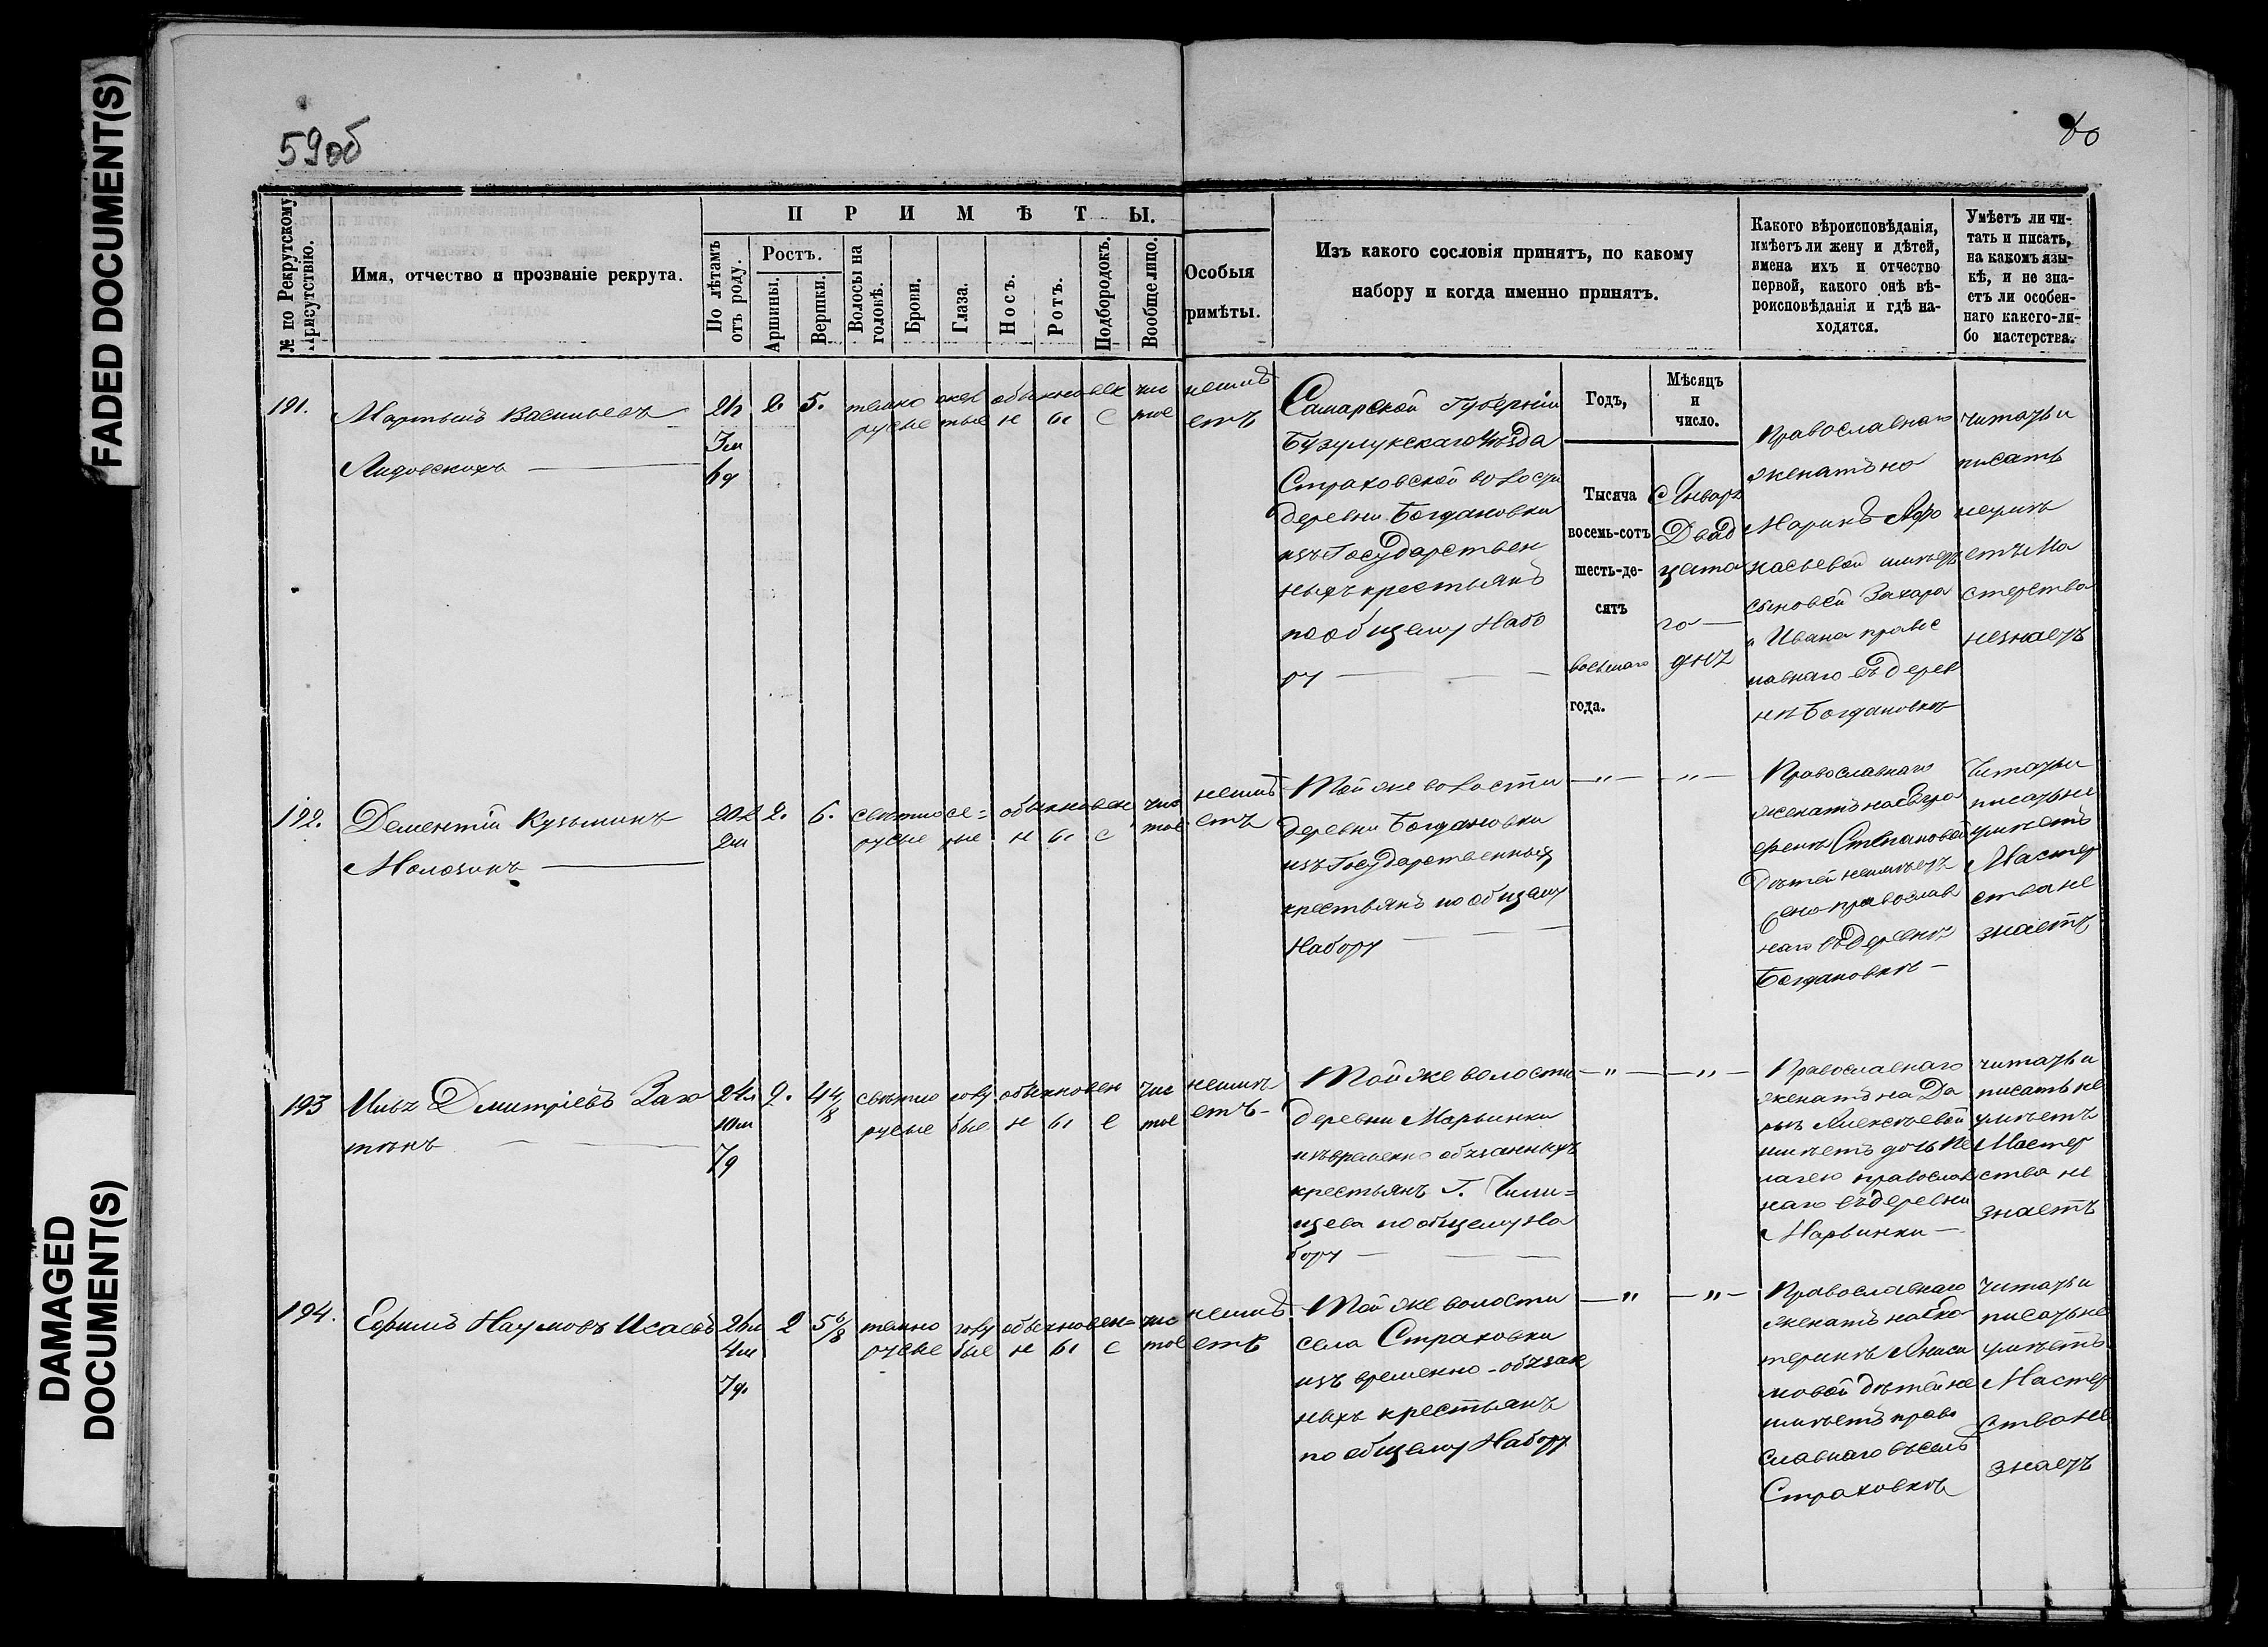 FADED DOCUMENT(S)
DAMAGED
DOCUMENT(S)
59об
60
№ по Рекрутскому
Присутствію.
Имя, отчество и прозваніе рекрута.
ПРИМѢТЫ.
По лѣтамъ
отъ роду.
Ростъ.
Аршины.
Вершки.
Волосы на
головѣ.
Брови.
Глаза.
Носъ.
Ротъ.
Подбородокъ.
Вообще лицо.
Особыя
римѣты.
Изъ какого сословія принятъ, по какому
набору и когда именно принятъ.
Какого вѣроисповѣданія,
имѣетъ ли жену и дѣтей,
имена ихъ и отчество
первой, какого онѣ вѣ-
роисповѣданія и гдѣ на-
ходятся.
Умѣетъ ли чи-
тать и писать,
на какомъ язы-
кѣ, и не зна-
етъ ли особен-
наго какого-ли-
бо мастерства.
191.
Мартынъ Васильевъ
Лидовскихъ
3м
6д
2
5.
темно
русые
обыкновен
н ы е
чис
тое
неимѣ
етъ
Самарской Губерніи
Бузулукскаго Уѣзда
Страховской волости
деревни Богдановки
изъ Государствен
ныхъ крестьянъ
по общему Набо
ру
Годъ,
Тысяча
восемь-сотъ
шесть-де-
сятъ
восьмаго
года.
Мѣсяцъ
и
число.
Январь
Двад
цата
го
дня
Православнаго
женатъ на
Маринѣ Афо
насьевой имѣетъ
сыновей Захара
и Ивана правос
лавнаго въ дерев
нѣ Богдановкѣ
читать и
писать
неумѣ
етъ Ма
стерства
незнаетъ
192.
Дементій Кузьминъ
Молозинъ
2м
2.
6.
свѣтло
русые
се=
рые
обыкновен
н ы е
чис
тое
неимѣ
етъ
Той же волости
деревни Богдановки
изъ Государственныхъ
крестьянъ по общему
Набору
— „ —
— „ —
Православнаго
женатъ на
Степановой
дѣтей неимѣетъ
православ
наго въ деревнѣ
Богдановкѣ —
Читать и
писать не
умѣетъ
Мастер
ства не
знаетъ
193
Илья Дмитріевъ
24л
10м
7д
2.
4 4/8
свѣтло
русые
голу
бые
обыкновен
н ы е
чис
тое
неимѣ
етъ-
Той же волости
деревни Марьинки
изъ временно обязанныхъ
крестьянъ Г.
щева по общему На
бору
— „ —
— „ —
Православнаго
женатъ на Да
рьѣ Алексѣевой
имѣетъ дочь Пе
лагею православ
наго въ деревни
Марьинки —
читать и
писать не
умѣетъ
Мастер
ства не
знаетъ
194.
Ефимъ Наумовъ Исаевъ
26л
4м
7д.
2
5 6/8
темно
русые
голу
бые
обыкновен=
н ы е
чис
тое
неимѣ
етъ
Той же волости
села Страховки
изъ временно-обязан
ныхъ крестьянъ
по общему Набору
— „
— „ —
Православнаго
женатъ на Ека
теринѣ Аниси
мовой дѣтей не
имѣетъ право
славнаго въ селѣ
Страховкѣ
Читать и
писать не
умѣетъ
Мастер
ства не
знаетъ